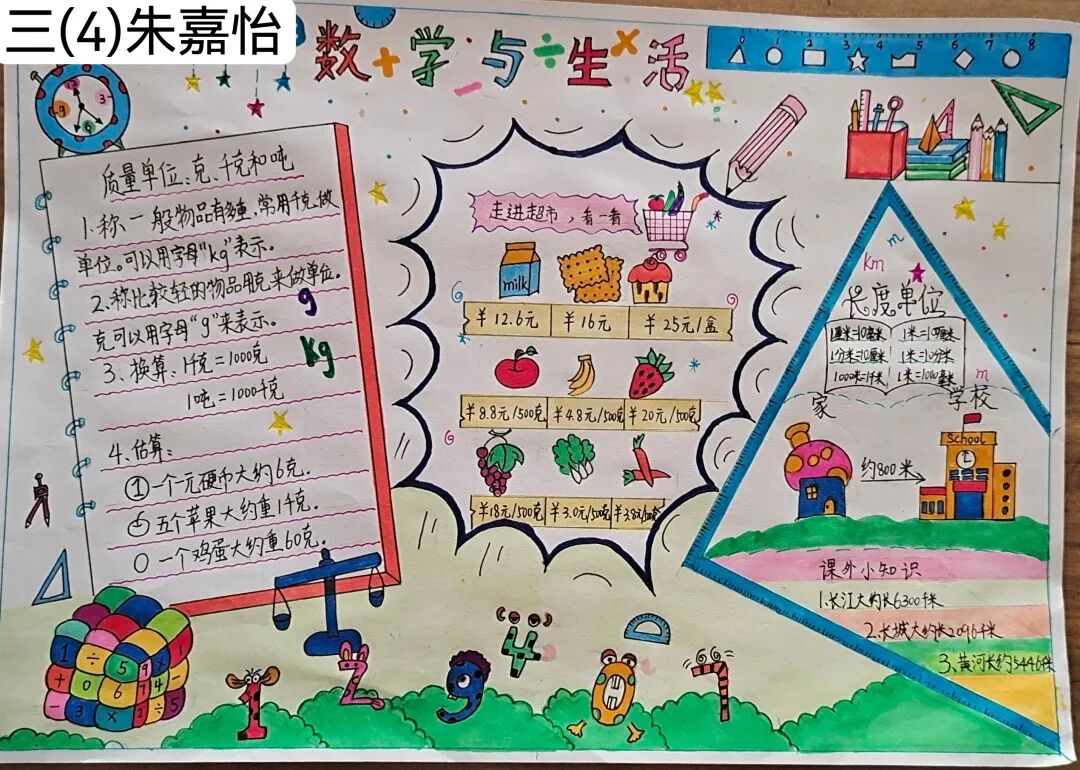 三(4)朱嘉怡
数+学与÷生×活
1 2 3 4 5 6 7 8
质量单位:克、千克和吨
1.称一般物品有多重,常用千克做
单位。可以用字母“kg”表示。
2.称比较轻的物品用克来做单位。
克可以用字母“g”来表示。
g
3、换算:1千克=1000克
kg
1吨=1000千克
4、估算:
①一个一元硬币大约6克.
五个苹果大约重1千克.
一个鸡蛋大约重60克.
走进超市,看一看
milk
¥12.6元 ¥16元 ¥25元/盒
¥8.8元/500克 ¥4.8元/500克 ¥20元/500克
¥18元/500克 ¥3.0元/500克 ¥3.8元/500克
m
km
长度单位
1厘米=10毫米 1米=100厘米
1分米=10厘米 1米=10分米
1000米=1千米 1米=1000毫米
m
家 学校
School
约800米
课外小知识
1.长江大约长6300千米
2.长城大约长21096千米
3.黄河长约5446千米
1 ÷ 5 9 ×
+ 0 6 7 4 -
- 3 × 2 ÷ 5
1 2 9 4 0 7